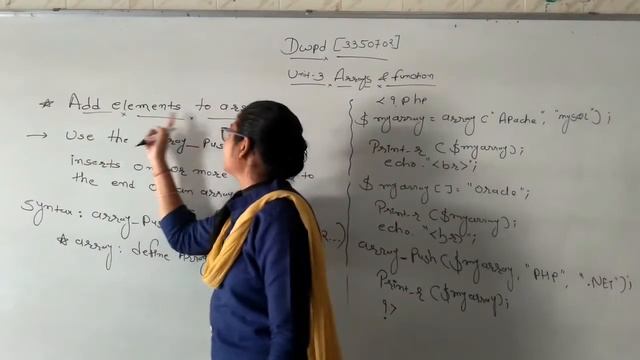 Dwpd [3350702]
Unit-3 Arrays & function
* Add elements to arr
→ use the array_Pus
inserts one or more to
the end of an array
Syntax: array_Pus 2...)
* array: define Array
<? php
$ myarray = array ("Apache", "mySQL");
Print-r ($myarray);
echo "<br>";
$ myarray [] = "Oracle";
Print-r ($myarray);
echo "<br>";
array-Push ($myarray, "PHP", ".NET");
Print-r ($myarray);
?>